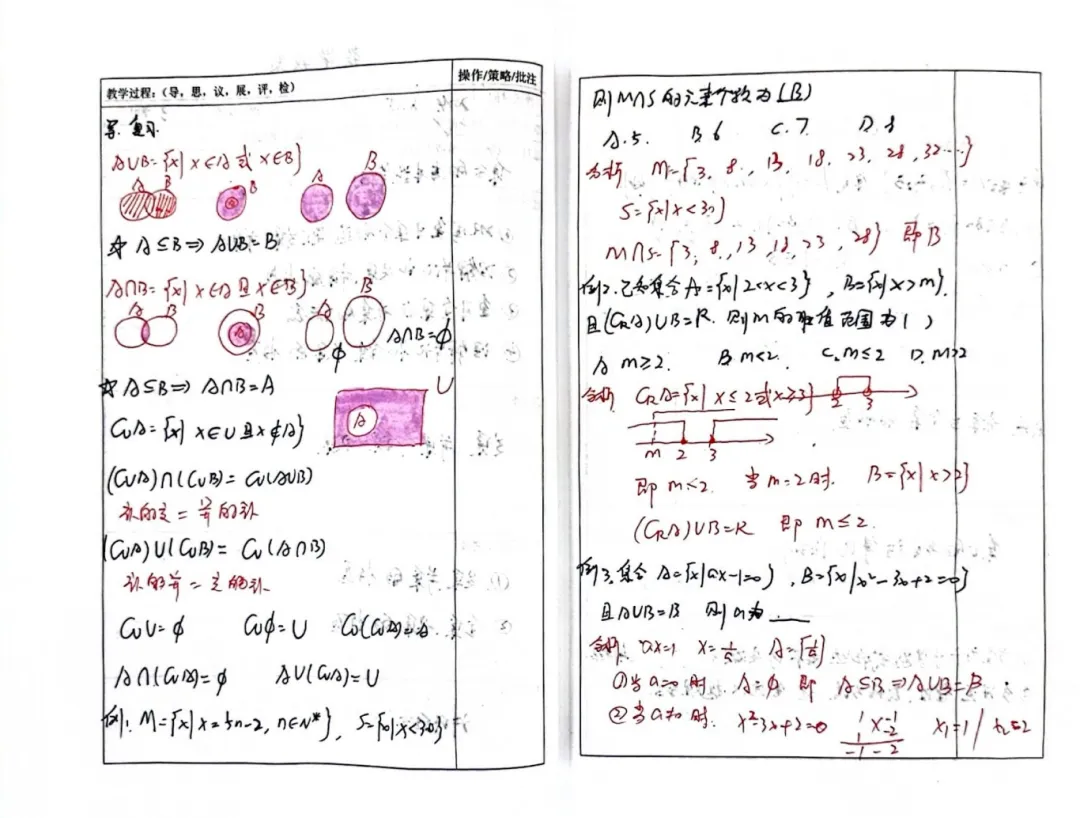 教学过程:(导,思,议,展,评,检)
操作/策略/批注
导.复习.
A∪B={x|x∈A或x∈B}
A B B A B
☆ A⊆B⇒A∪B=B
A∩B={x|x∈A且x∈B}
A B A B A B
φ A∩B=φ
☆ A⊆B⇒A∩B=A
U
A
CuA={x|x∈U且x∉A}
(CuA)∩(CuB)=Cu(A∪B)
补的交=并的补
(CuA)∪(CuB)=Cu(A∩B)
补的并=交的补
CuU=φ Cuφ=U Cu(CuA)=A
A∩(CuA)=φ A∪(CuA)=U
例1. M={x|x=5n-2, n∈N*}, S={x|x<30}
则M∩S的元素个数为(B)
A.5. B.6 C.7. D.8
分析 M={3, 8, 13, 18, 23, 28, 32…}
S={x|x<30}
M∩S={3, 8, 13, 18, 23, 28} 即B
例2.已知集合A={x|2<x<3}, B={x|x>m}.
且(CRA)∪B=R. 则m的取值范围为( )
A m≥2. B m<2. C. m≤2 D. m>2
分析 CRA={x|x≤2或x≥3}
2 3
m 2 3
即m<2. 当m=2时. B={x|x>2}
(CRA)∪B=R 即m≤2.
例3.集合A={x|ax-1=0}, B={x|x²-3x+2=0}
且A∪B=B 则a为.
分析 ax=1 x=1/a A={1/a}
①当a=0时 A=φ 即 A⊆B⇒A∪B=B.
②当a≠0时. x²-3x+2=0 1 -1 x1=1 / x2=2
1 -2
-1-2